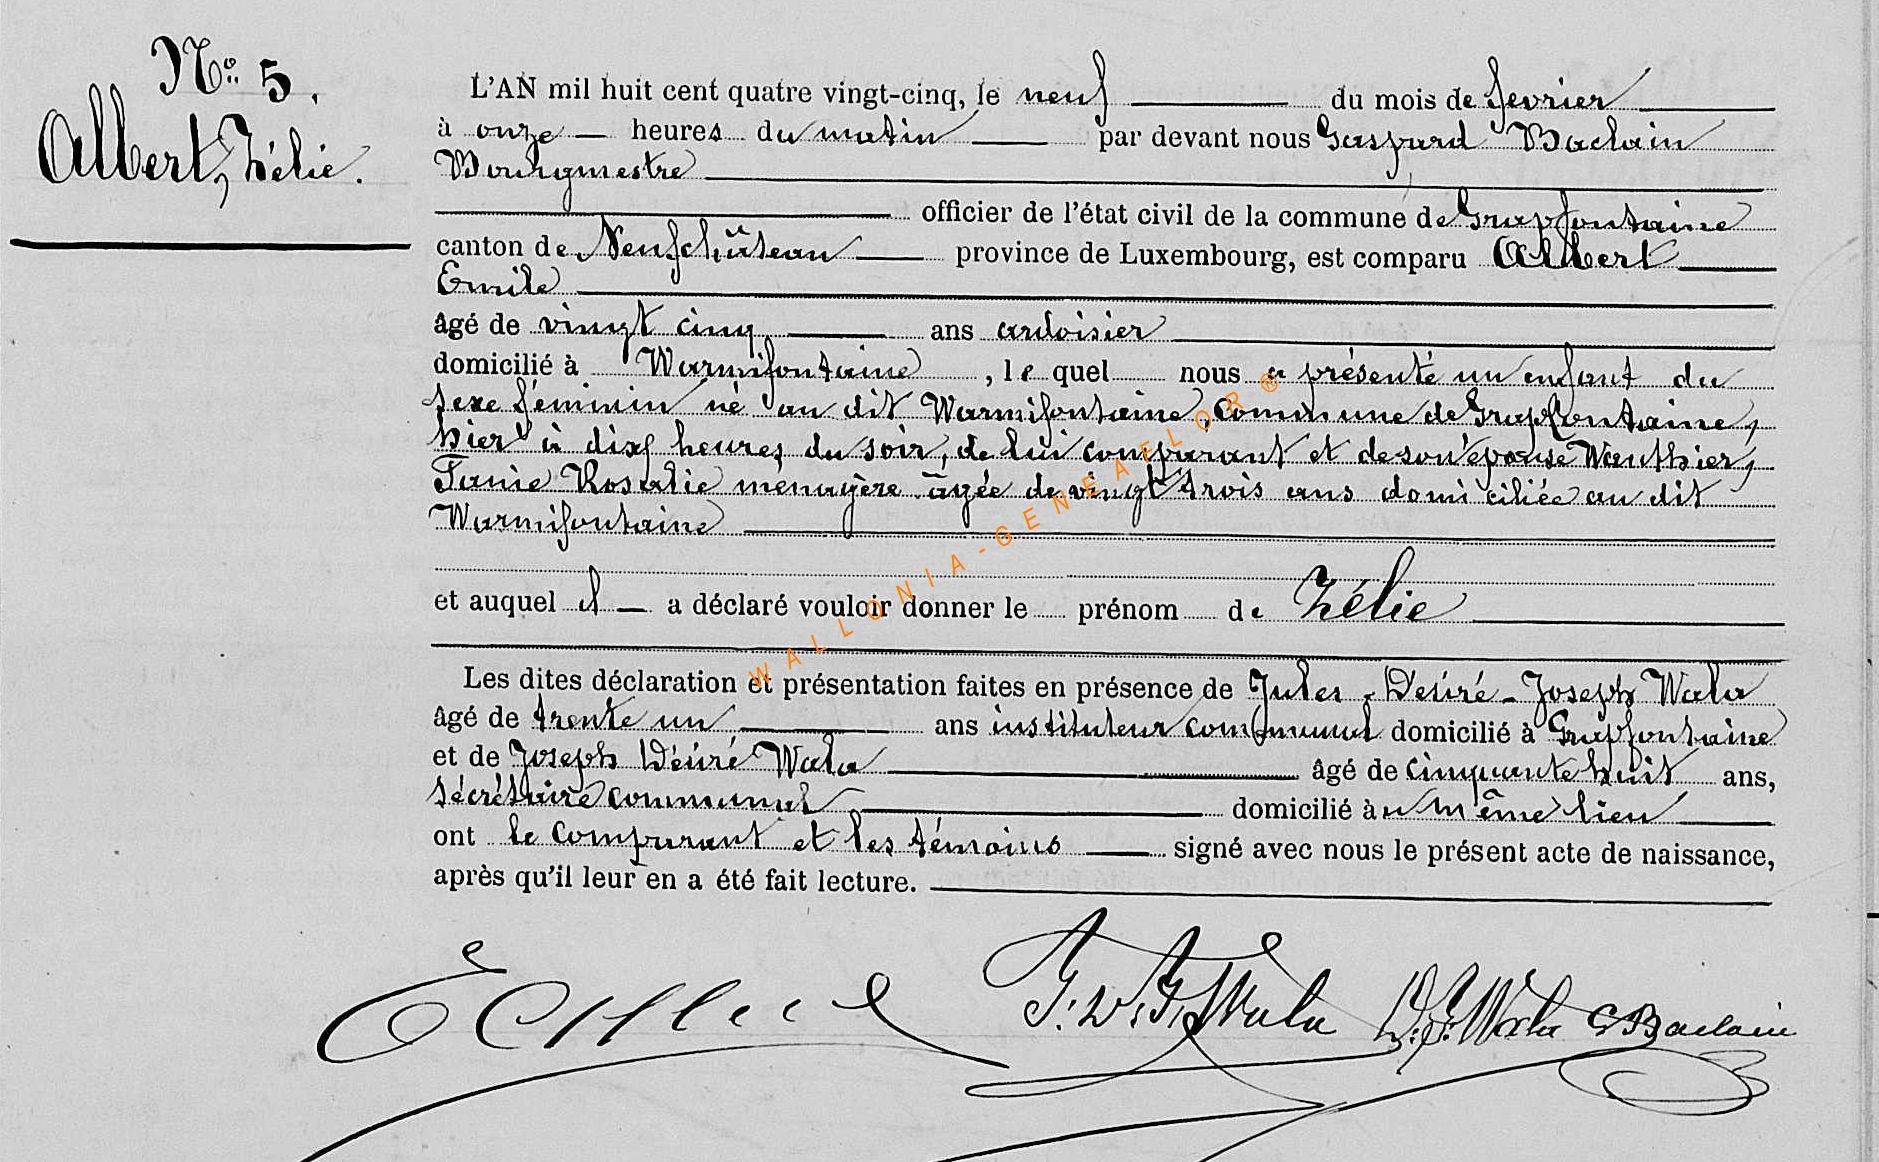 No 5.
Albert, Zélie.
L'AN mil huit cent quatre vingt-cinq, le neuf du mois de fevrier
à onze heures du matin par devant nous Gaspard Baclain
Bourgmestre
officier de l'état civil de la commune de Grapfontaine
canton de Neufchâteau province de Luxembourg, est comparu Albert
Emile
âgé de vingt cinq ans ardoisier
domicilié à Warmifontaine, le quel nous a présenté un enfant du
sexe féminin né au dit Warmifontaine, commune de Grapfontaine,
hier à dix heures du soir, de lui comparant et de son épouse Wauthier,
Fanie Rosalie menagère âgée de vingt trois ans domiciliée au dit
Warmifontaine
et auquel il a déclaré vouloir donner le prénom de Zélie
Les dites déclaration et présentation faites en présence de Jules-Désiré-Joseph Wala
âgé de trente un ans instituteur communal domicilié à Grapfontaine
et de Joseph Désiré Wala âgé de cinquante huit ans,
sécrétaire communal domicilié à u même lieu
ont le comparant et les témoins signé avec nous le présent acte de naissance,
après qu'il leur en a été fait lecture.
J. D. J. Wala D. J. Wala G Baclain
WALLONIA-GENEAFLOR®